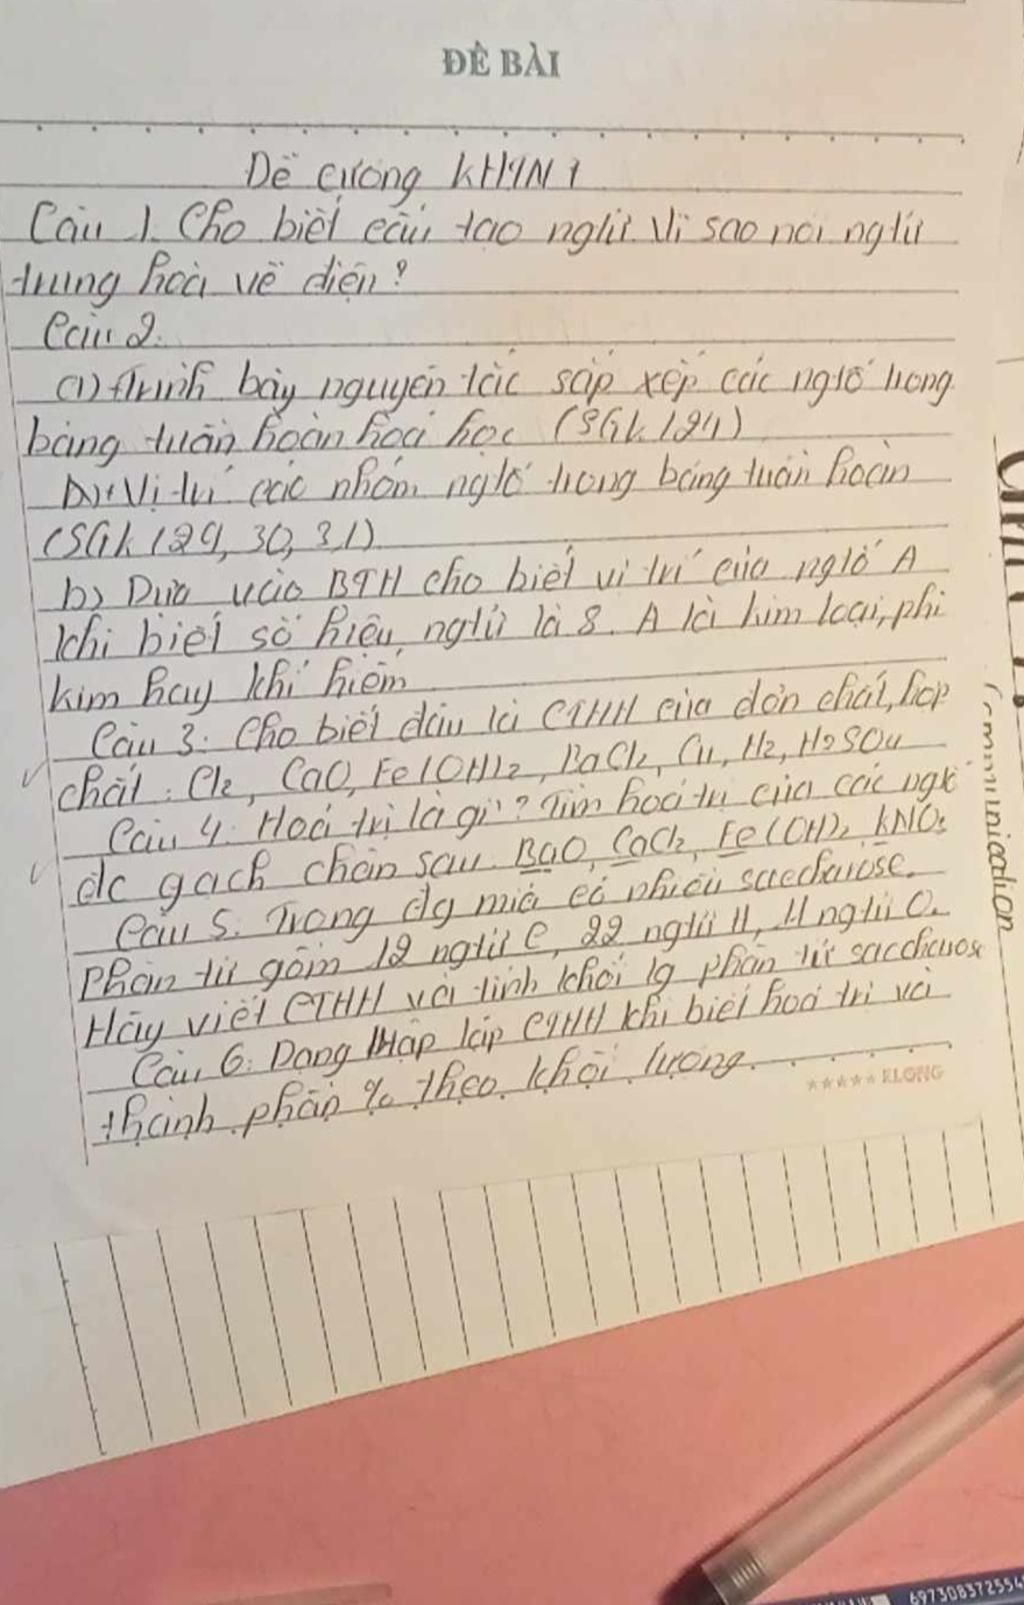 ĐỀ BÀI
Dề cương KHTN 1
Câu 1. Cho biết cấu tạo ngtử. Vì sao nói ngtử
trung hoà về điện?
Câu 2.
a) trình bày nguyên tắc sắp xếp các ngtố trong
bảng tuần hoàn hoá học (SGK/24)
Vị trí các nhóm ngtố trong bảng tuần hoàn
(SGK/29, 30, 31)
b) Dựa vào BTH cho biết vị trí của ngtố A
khi biết số hiệu ngtử là 8. A là kim loại, phi
kim hay khí hiếm
Câu 3: Cho biết đâu là CTHH của đơn chất, hợp
chất: Cl2, CaO, Fe(OH)2, BaCl2, Cu, H2, H2SO4
Câu 4: Hoá trị là gì? Tìm hoá trị của các ngtố
đc gạch chân sau BaO, CaCl2, Fe(OH)2, KNO3
Câu 5. Trong đg mía có nhiều saccharose.
Phân tử gồm 12 ngtử C, 22 ngtử H, 11 ngtử O.
Hãy viết CTHH và tính khối lg phân tử saccharose
Câu 6: Dạng lập CTHH khi biết hoá trị và
thành phần % theo khối lượng
★★★★★ KLONG
communication
697308372554